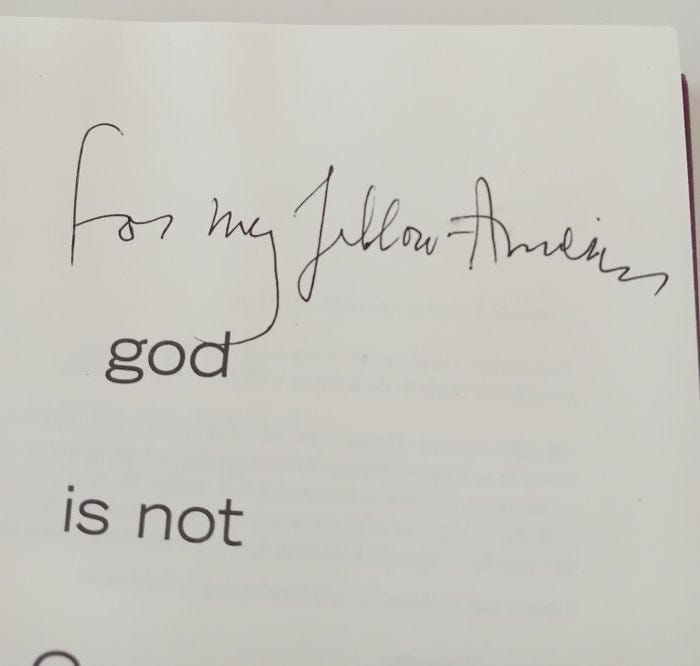 For my fellow-American
god
is not